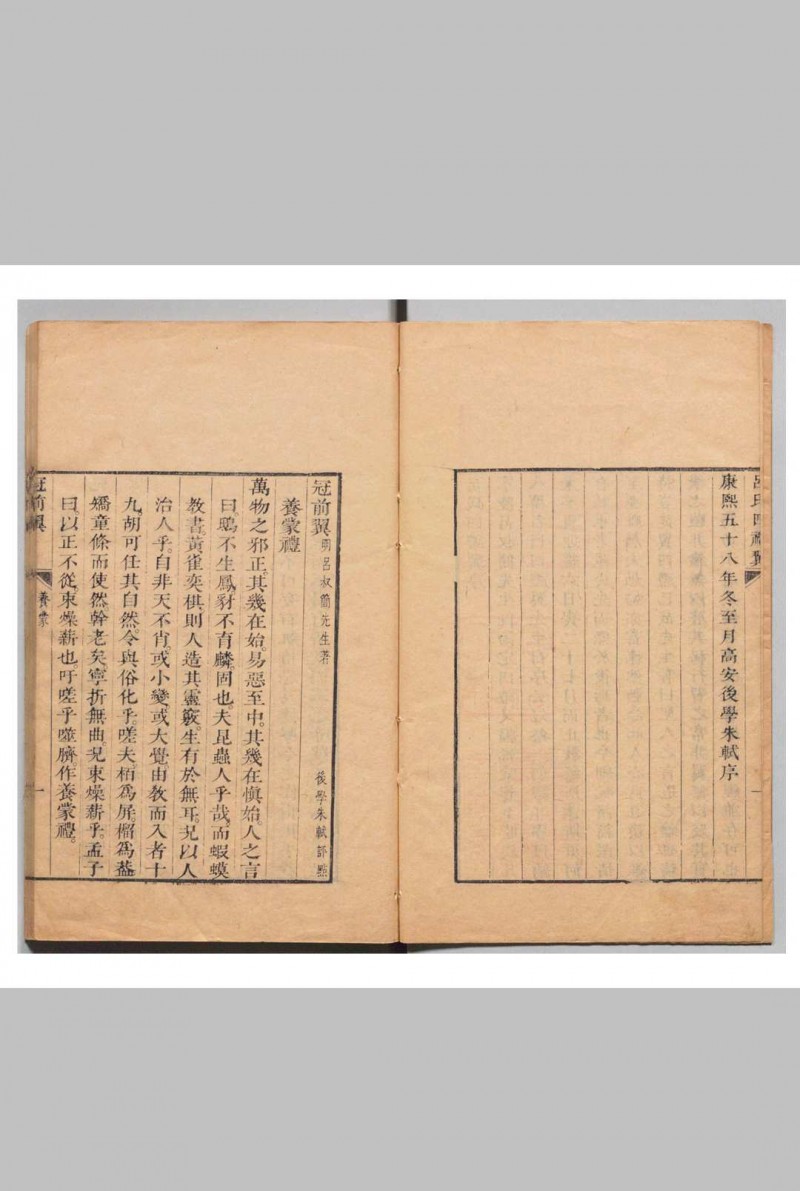 呂氏四禮翼
康熙五十八年冬至月高安後學朱軾序
一
冠前翼 明呂叔簡先生著 後學朱軾評點
養蒙禮
萬物之邪正其幾在始。易惡至中。其幾在愼始。人之言
曰。鴞不生鳳。豺不有麟。固也。夫昆蟲人乎哉。而蝦蟆
敎書。黃雀奕棋。則人造其靈竅。生有於無耳。況以人
治人乎。自非天不肖。或小變。或大覺。由敎而入者十
九。胡可任其自然。令與俗化乎。嗟夫。栢爲屏。檜爲葢。
矯童條而使然。幹老矣。寧折無曲。況束燥薪乎。孟子
曰。以正不從。束燥薪也。吁嗟乎。噬臍。作養蒙禮。
冠前翼
養蒙
一